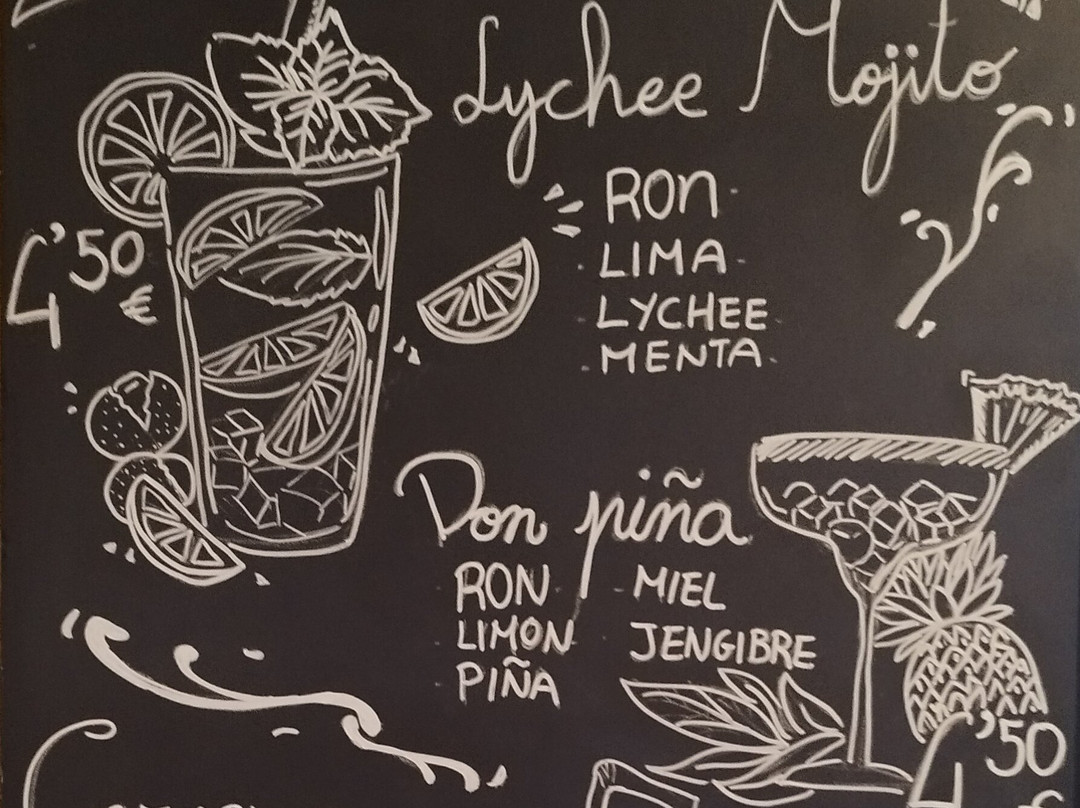 Lychee Mojito
RON
LIMA
LYCHEE
MENTA
4'50
€
Don piña
RON
LIMON
PIÑA
MIEL
JENGIBRE
4'50